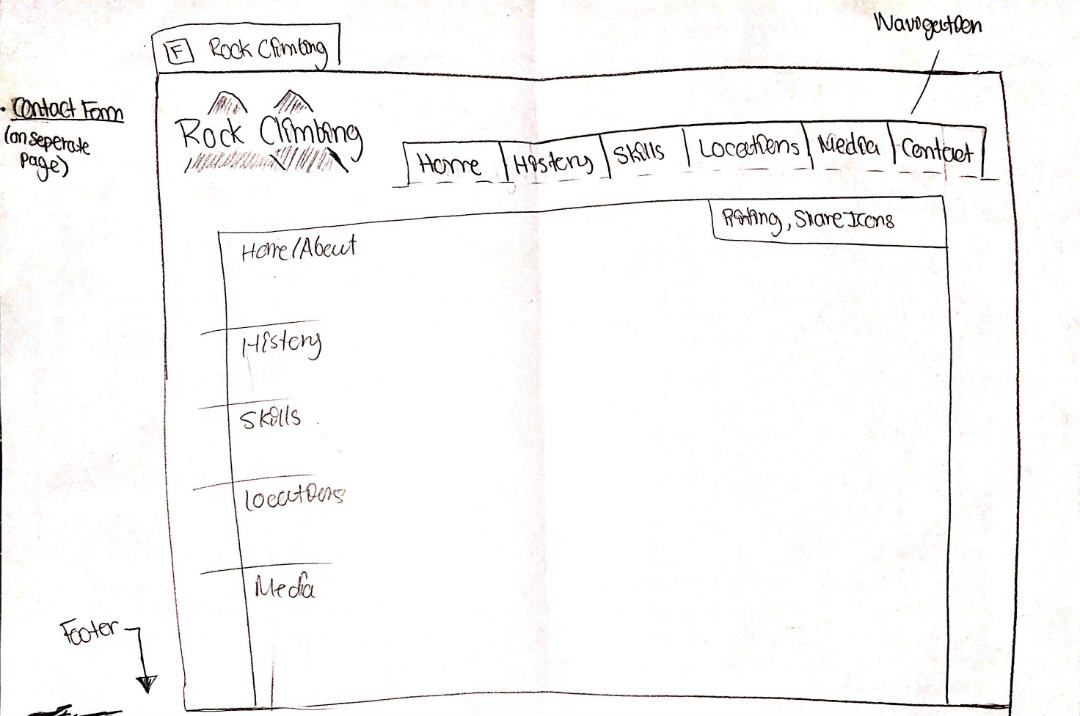 Navigation
F Rock Climbing
• Contact Form
(on seperate
page)
Rock Climbing
Home
History
Skills
Locations
Media
Contact
Rating, Share Icons
Home/About
History
Skills
Locations
Media
Footer